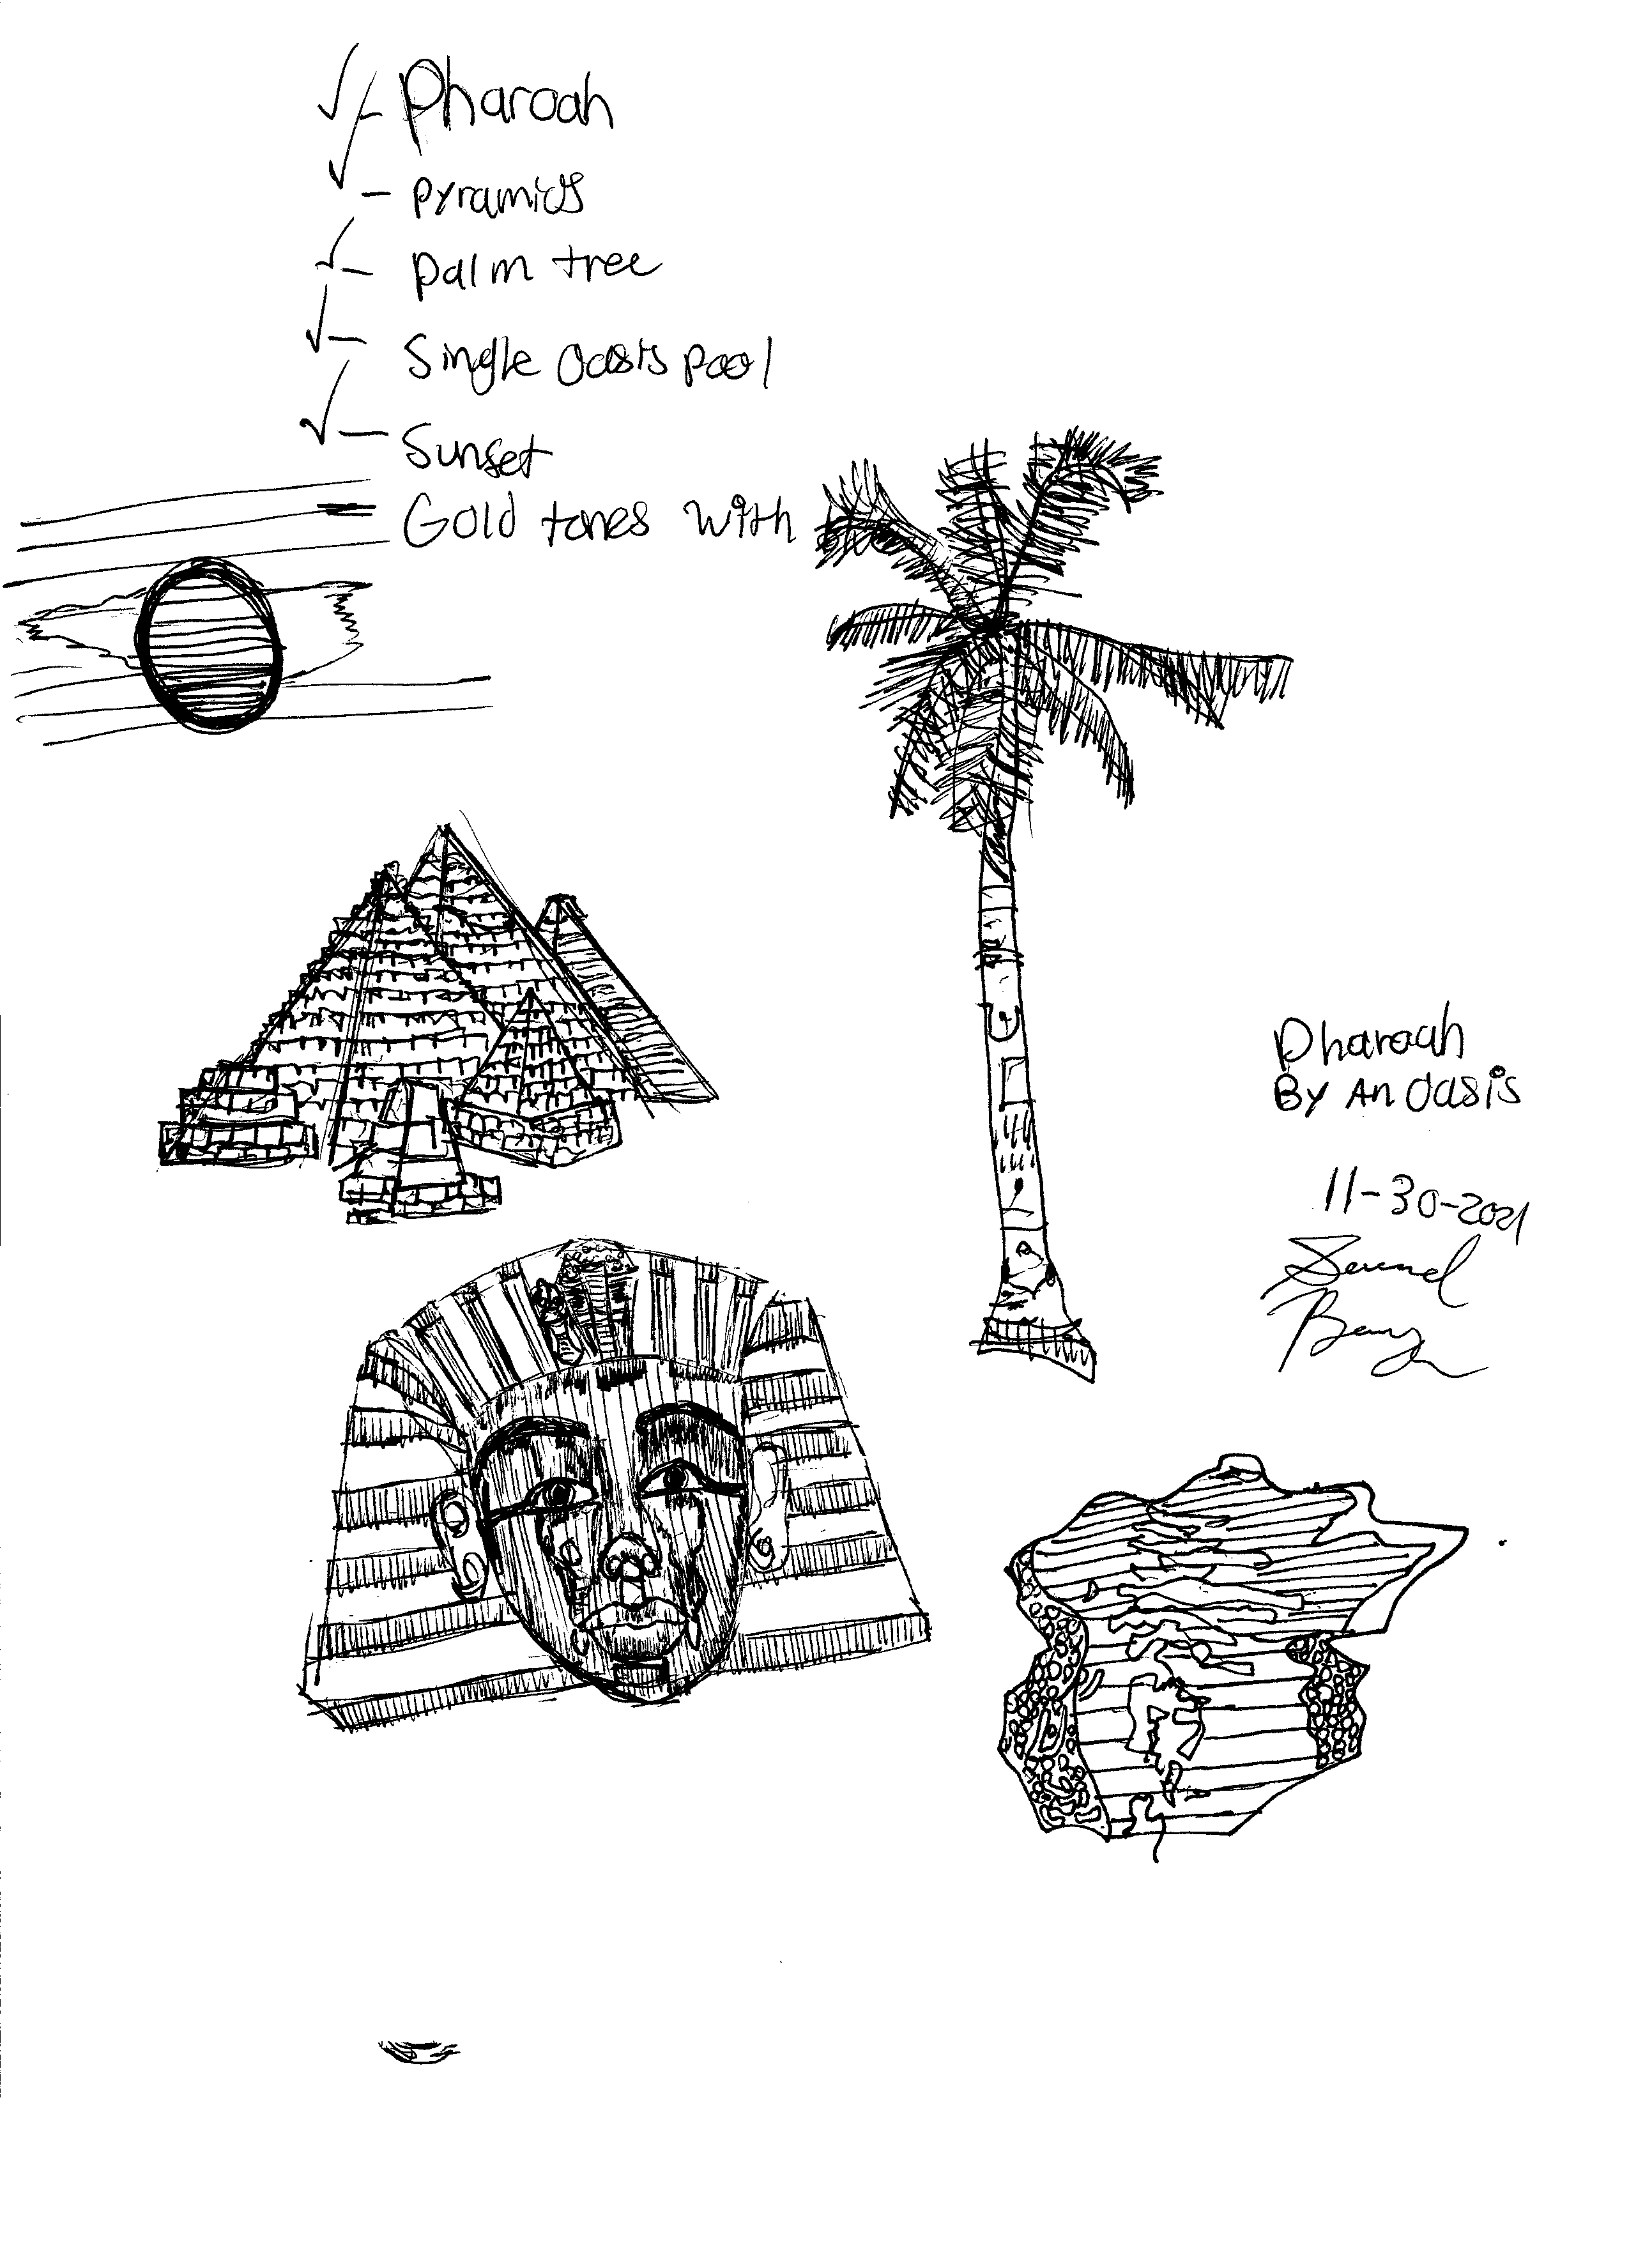 Pharoah
Pyramids
Palm tree
Single Oasis Pool
Sunset
Gold tones with
Pharoah
By An Oasis
11-30-2021